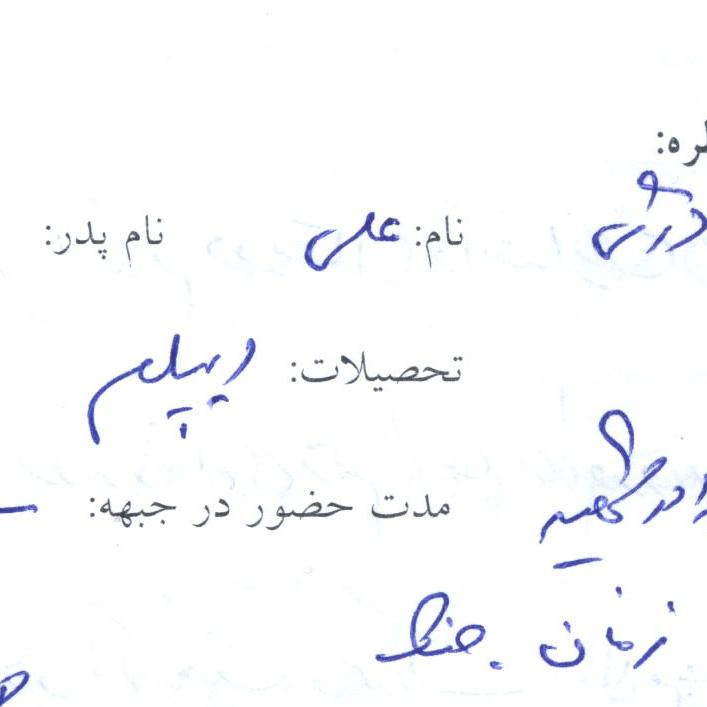 نام: علی نام پدر:
تحصیلات: دیپلم
مدت حضور در جبهه: –
زمان جنگ